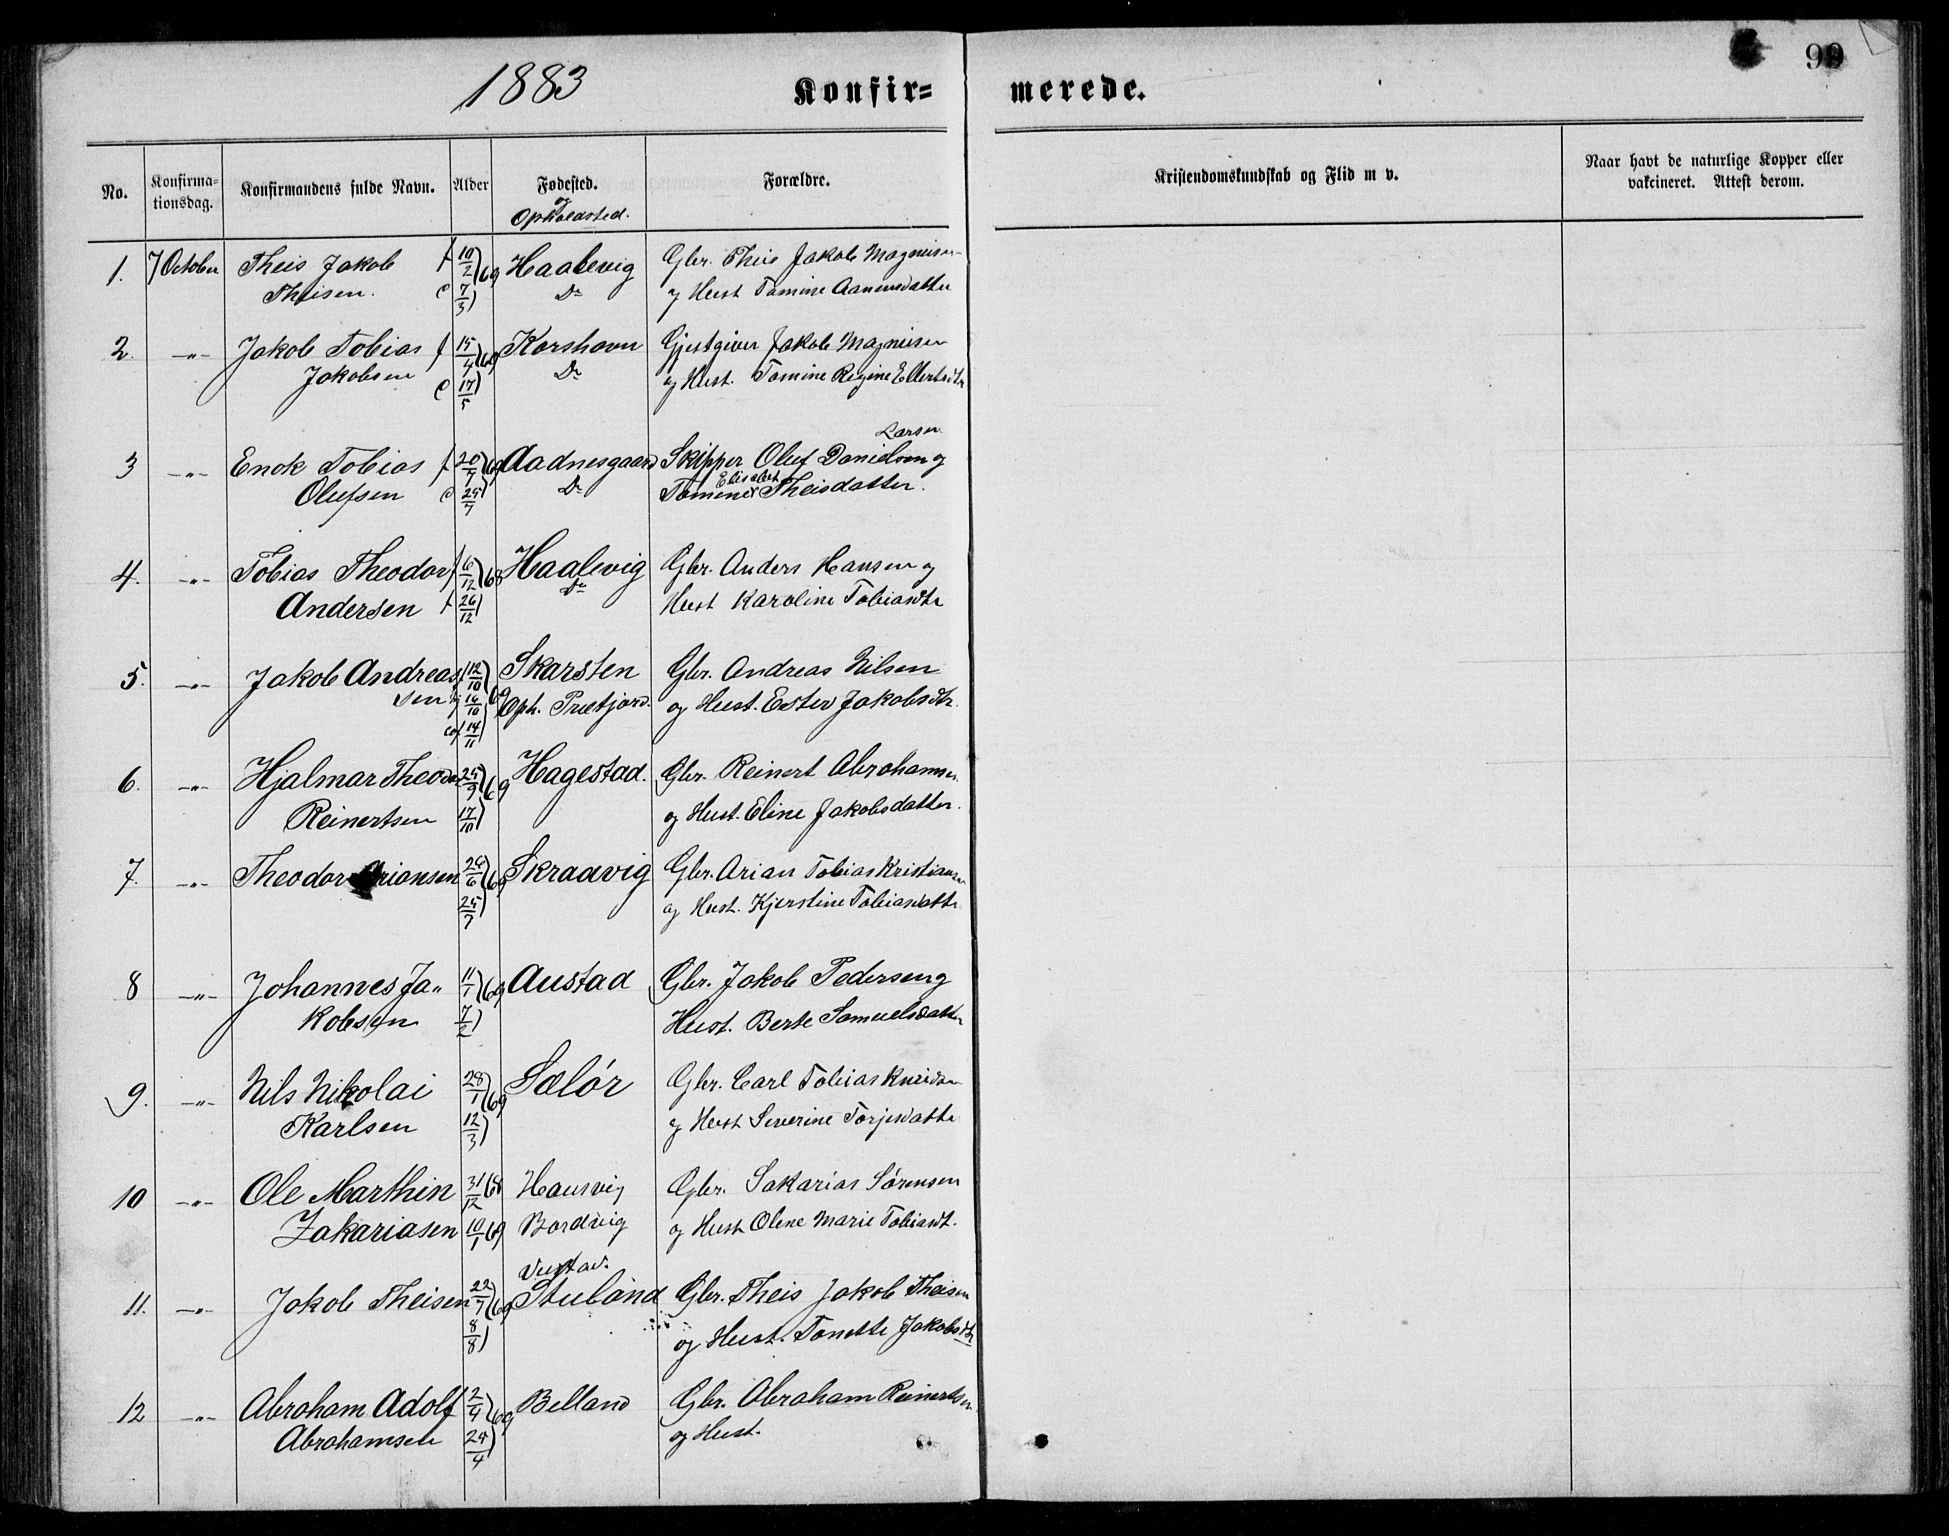 1883
Konfir=
merede.
99
No.
Konfirma-
tionsdag.
Konfirmandens fulde Navn.
Alder
Fødested.
og
Opholdssted.
Forældre.
Kristendomskundskab og Flid m v.
Naar havt de naturlige Kopper eller
vakcineret. Attest derom.
1. 7 October Theis Jakob f 10/2 69 Haalevig Gbr. Theis Jakob Magnusen
Theisen. d 7/3 Do og Hust Tomine Aanensdatter
2. -"- Jakob Tobias f 15/4 69 Korshavn Gjestgiver Jakob Magnusen
Jakobsen d 17/5 Do og Hust. Tomine Regine Ellertsdtr
Larsen
3 -"- Enok Tobias f 20/7 69 Aadnesgaard Skipper Oluf Danielsen og
Elisabet
Olufsen d 25/7 Do Tomine Theisdatter.
4. -"- Tobias Theodor f 6/12 68 Haalevig Gbr. Anders Hansen og
Andersen 26/12 Do Hust Karoline Tobiasdtr
5. -"- Jakob Andreas 12/10 69 Skarsten Gbr. Andreas Nilsen
sen 16/10 Oph. og Hust. Ester Jakobsdtr.
14/11
6. -"- Hjalmar Theodor 25/9 69 Hagestad. Gbr. Reinert Abrahamsen
Reinertsen 17/10 og Hust. Eline Jakobsdatter.
7. -"- Theodor Ariansen 24/6 69 Skraavig Gbr. Arian Tobias Kristiansen
25/7 og Hust. Kjerstine Tobiasdattr
8 -"- Johannes Ja" 11/1 69 Austad Gbr. Jakob Pedersen og
kobsen 7/2 Hust. Berte Samuelsdatter
9. -"- Nils Nikolai 28/1 69 Sælør Gbr. Carl Tobias
Karlsen 12/3 og Hust Severine Torjesdattr
10 -"- Ole Marthin 31/12 68 Hausvig Gbr. Sakarias Sørensen
Zakariasen 10/1 69 Bordvig og Hust Olene Marie Tobiasdt.
11. -"- Jakob Theisen 22/7 69 Stuland Gbr. Theis Jakob Theisen
8/8 og Hust. Tonette Jakobsdtr
12 -"- Abraham Adolf 2/4 69 Belland Gbr. Abraham Reinertsen
Abrahamsen 25/4 og Hust.